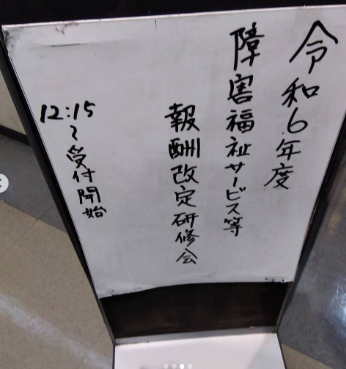 令和6年度
障害福祉サービス等
報酬改定研修会
12:15〜受付開始